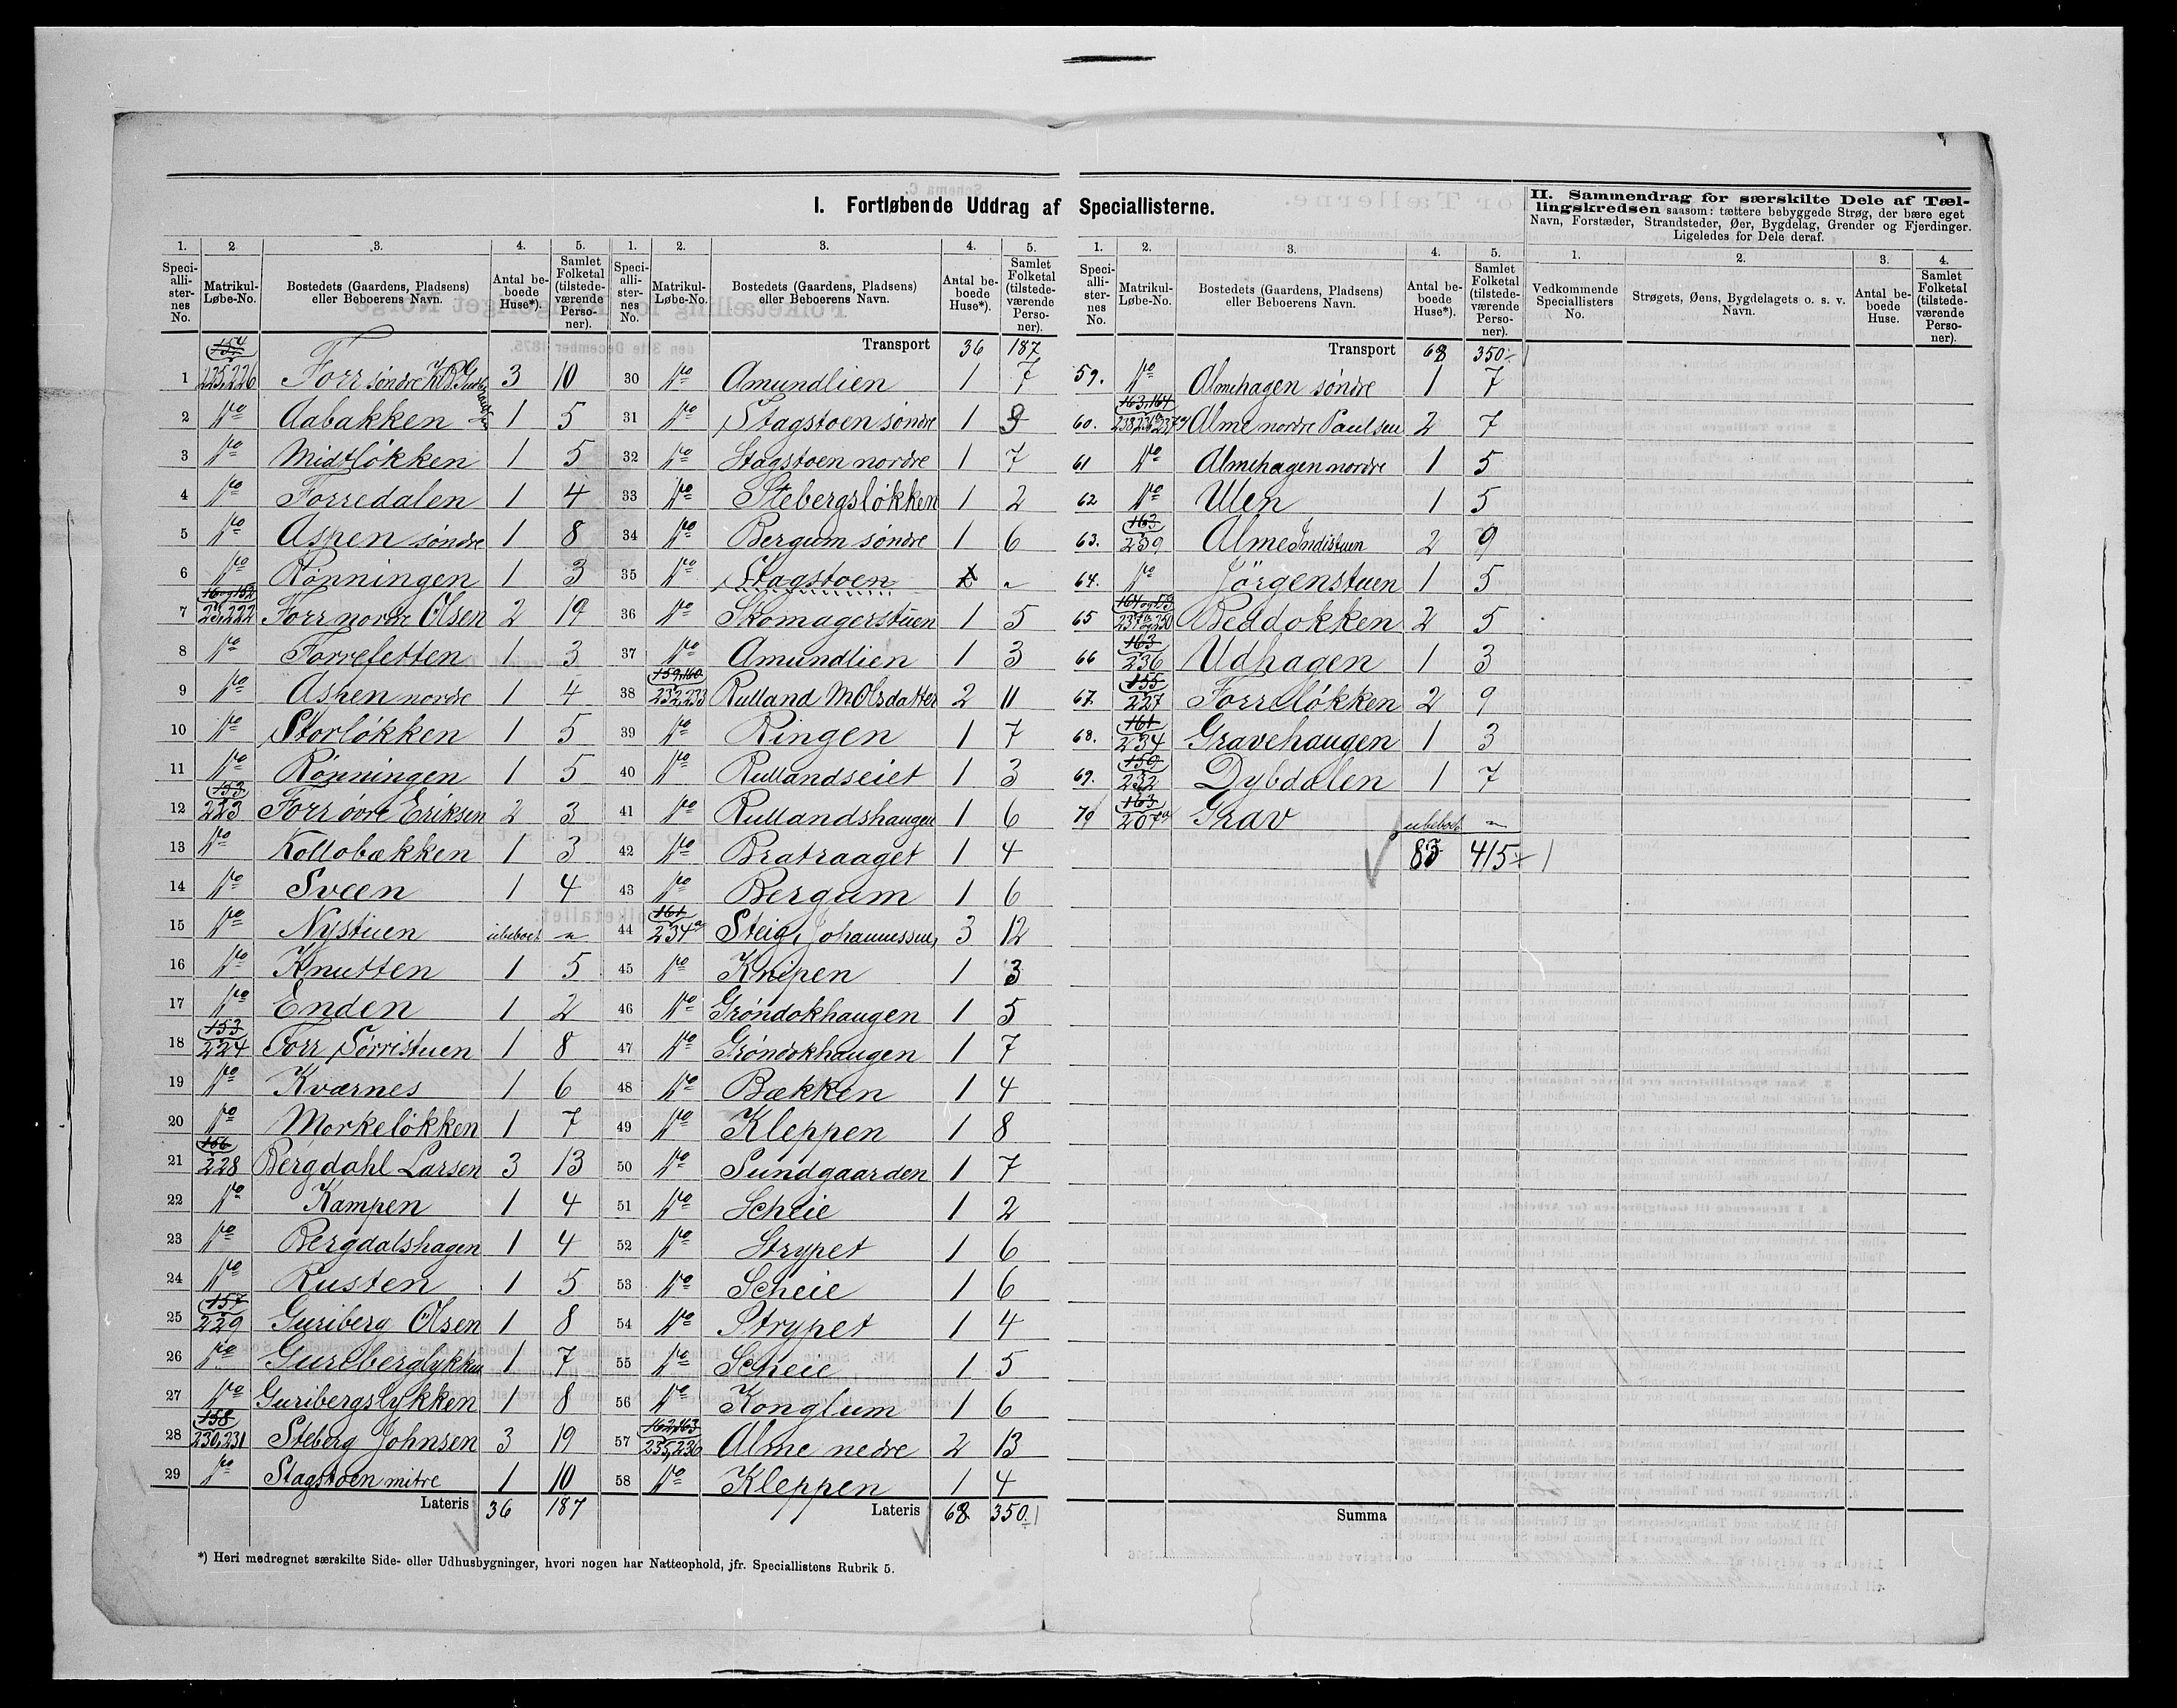 I. Fortløbende Uddrag af Speciallisterne.
1. 2 3. 4. 5.
Speci-alli-ster-nes No. Matrikul-Løbe-No. Bostedets (Gaardens, Pladsens) eller Beboerens Navn. Antal be-boede Huse*). Samlet Folketal (tilstede-værende Perso-ner).
154
1 225,226 Forr søndre 3 10
2 do Aabakken 1 5
3 do Midtløkken 1 5
4 do Forredalen 1 4
5 do Aspen søndre 1 8
6 do Rønningen 1 3
7 Forr nordre Olsen 2 19
8 do Forrefetten 1 3
9 do Aspen nordre 1 4
10 do Storløkken 1 5
11 do Rønningen 1 5
153
12 223 Forr øvre Eriksen 2 3
13 do Kollobækken 1 3
14 do Sveen 1 4
15 do Nystuen ubeboet "
16 do Knutten 1 5
17 do Enden 1 2
153
18 224 Forr Sørristuen 1 8
19 do Kværnes 1 6
20 do Morkeløkken 1 7
156
21 228 Bergdahl Larsen 3 13
22 do Kampen 1 4
23 do Bergdalshagen 1 4
24 do Rusten 1 5
157
25 229 Guriberg Olsen 1 8
26 do Guriberglykken 1 7
27 do Guribergslykken 1 8
158
28 230,231 Steberg Johnsen 3 19
29 do Stagstoen mitre 1 10
Lateris 36 187
1. 2. 3. 4. 5.
Speci-alli-ster-nes No. Matrikul-Løbe-No. Bostedets (Gaardens, Pladsens) eller Beboerens Navn. Antal be-boede Huse*). Samlet Folketal (tilstede-værende Perso-ner).
Transport 36 187
30 do Amundlien 1 7
31 do Stagstoen søndre 1 9
32 do Stagstoen nordre 1 7
33 do Stebergsløkken 1 2
34 do Bergum søndre 1 6
35 do Stagstoen "
36 do Skomagerstuen 1 5
37 do Amundlien 1 3
159,160
38 232,233 Rulland M. Olsdatter 2 11
39 do Ringen 1 7
40 do Rullandseiet 1 3
41 do Rullandshaugen 1 6
42 do Bratraaget 1 4
43 do Bergum 1 6
161
44 234a Steig, Johannessen, 3 12
45 do Knipen 1 3
46 do Grøndokhaugen 1 5
47 do Grøndokhaugen 1 7
48 do Bækken 1 4
49 do Kleppen 1 8
50 do Sundgaarden 1 7
51 do Scheie 1 2
52 do Strypet 1 6
53 do Scheie 1 6
54 do Strypet 1 4
55 do Scheie 1 5
56 do Konglum 1 6
162,163
57 235,236 Alme nedre 2 13
58 do Kleppen 1 4
Lateris 68 350.
*) Heri medregnet særskilte Side- eller Udhusbygninger, hvori nogen har Natteophold, jfr. Speciallistens Rubrik 5.
1. 2. 3. 4. 5.
Speci-alli-ster-nes No. Matrikul-Løbe-No. Bostedets (Gaardens, Pladsens) eller Beboerens Navn. Antal be-boede Huse*). Samlet Folketal (tilstede-værende Perso-ner).
Transport 68 350
59. do Almehagen søndre 1 7
163,164
60. Alme nordre Paulsen 2 7
61 do Almehagen nordre 1 5
62 do Ulen 1 5
163
63. 239 Alme Indistuen 2 9
64. do Jørgenstuen 1 5
65 Beddokken 2 5
163
66 236 Udhagen 1 3
155
67. 227 Forreløkken 2 9
161
68. 234 Gravehaugen 1 3
159
69. 232 Dybdalen 1 7
163
70 207a Grav ubeboet "
83 415
Summa
II. Sammendrag for særskilte Dele af Tæl-
lingskredsen saasom: tættere bebyggede Strøg, der bære eget
Navn, Forstæder, Strandsteder, Øer, Bygdelag, Grender og Fjerdinger.
Ligeledes for Dele deraf.
1. 2. 3. 4.
Vedkommende Speciallisters No. Strøgets, Øens, Bygdelagets o. s. v. Navn. Antal be-boede Huse. Samlet Folketal (tilstede-værende Perso-ner).